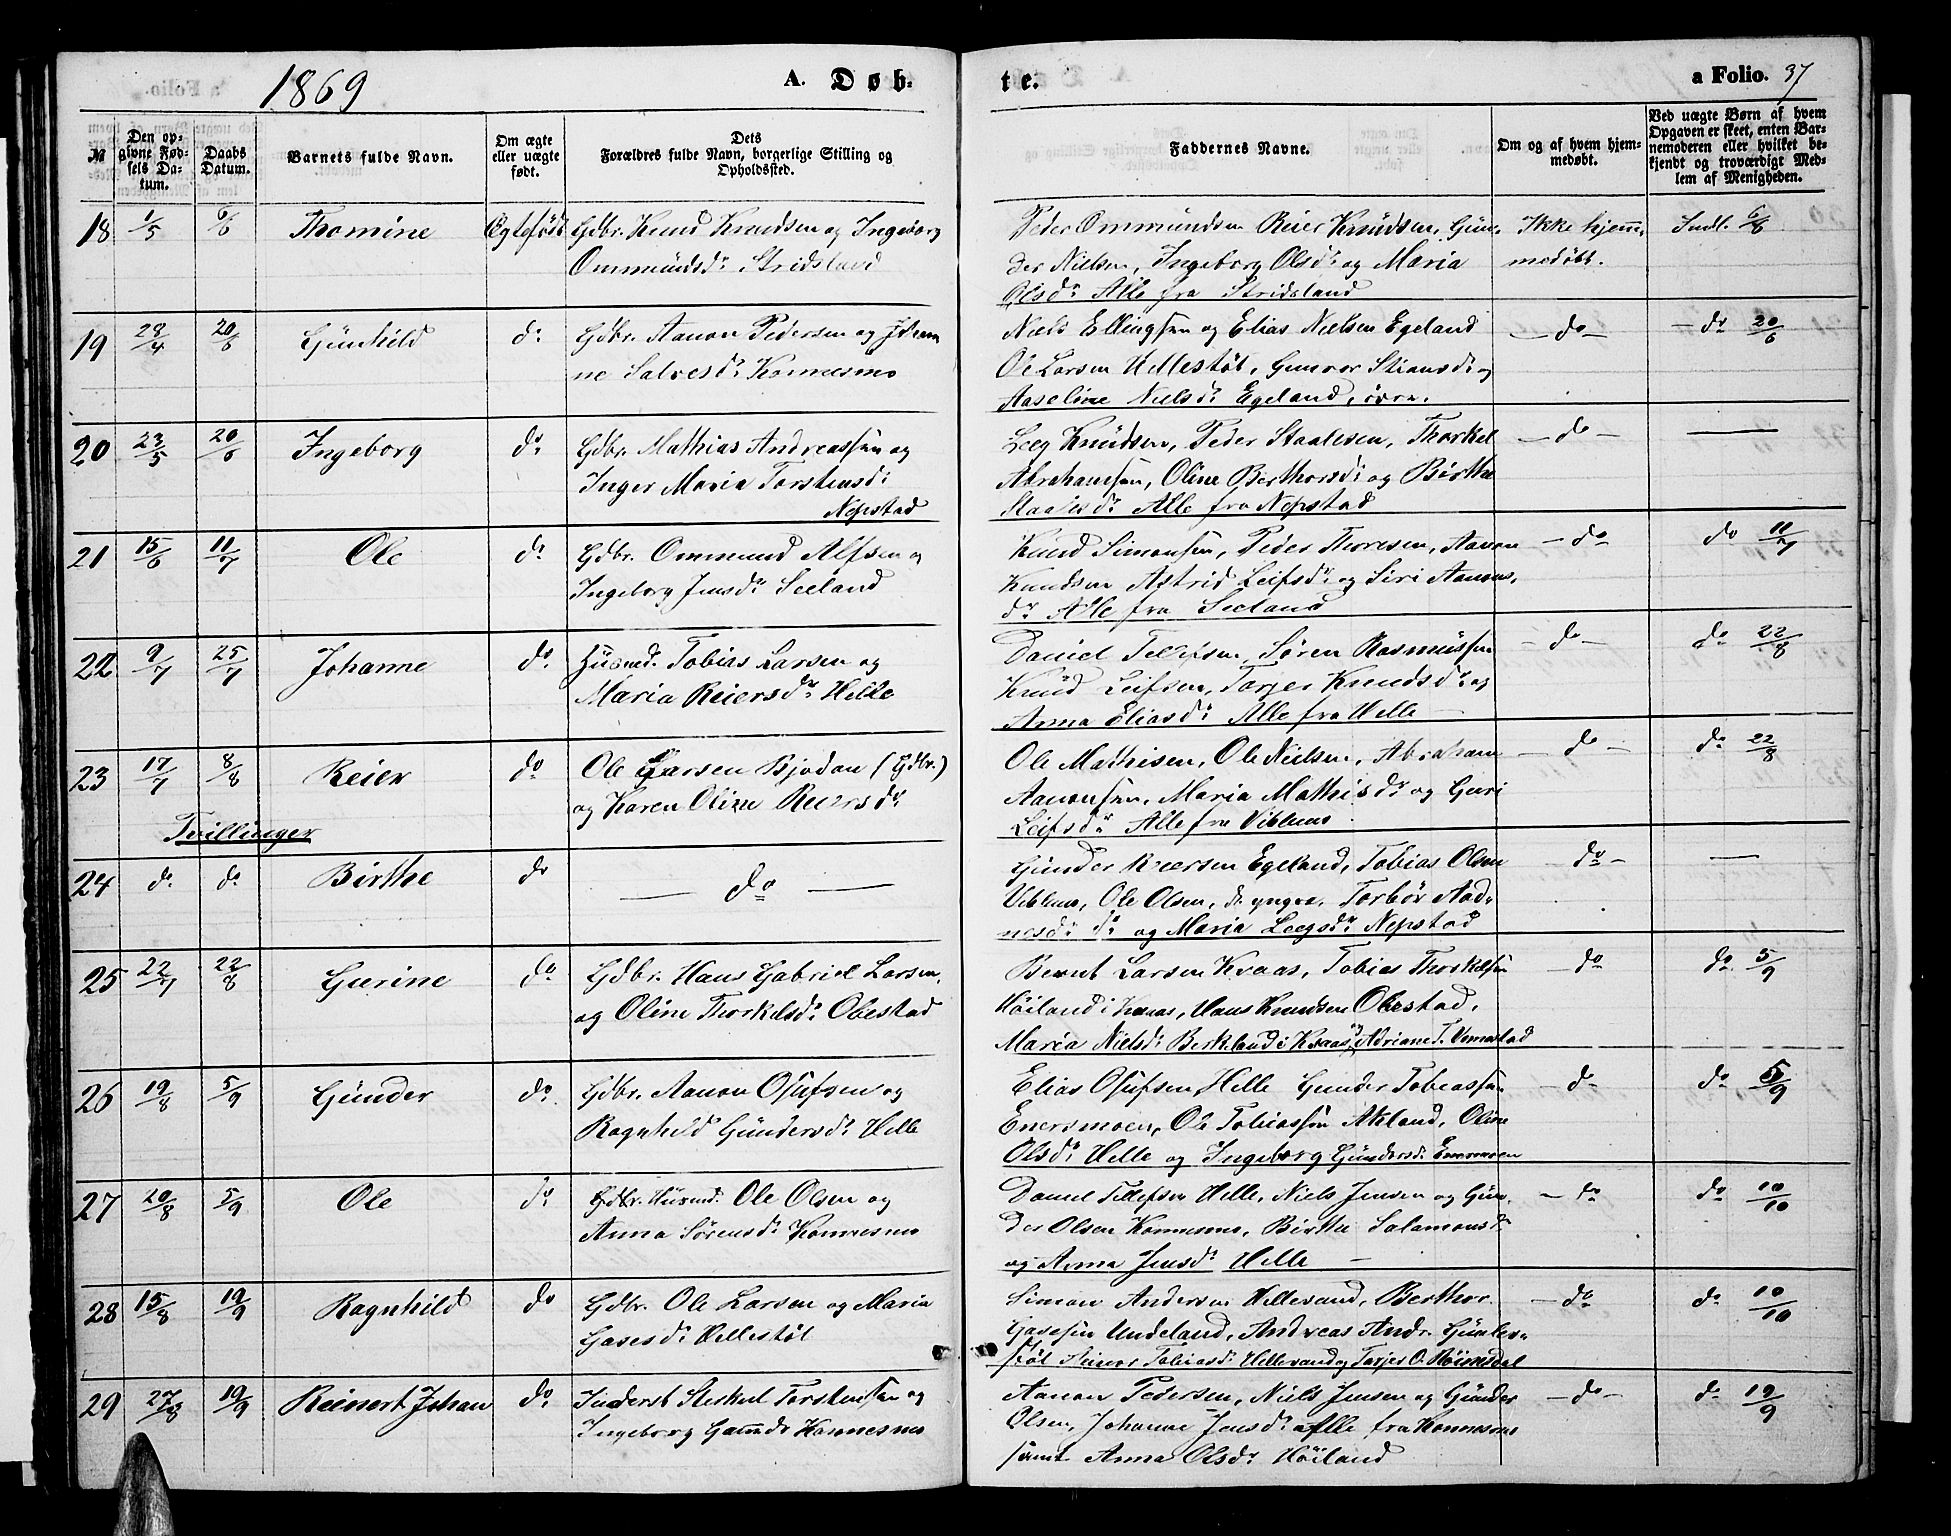 1869
A. Døb-
te.
a Folio. 37
№
Den op-
givne Fød-
sels Da-
tum.
Daabs
Datum.
Barnets fulde Navn.
Om ægte
eller uægte
født.
Dets
Forældres fulde Navn, borgerlige Stilling og
Opholdssted.
Faddernes Navne.
Om og af hvem hjem-
medøbt.
Ved uægte Børn af hvem
Opgaven er skeet, enten Bar-
nemoderen eller hvilket be-
kjendt og troværdigt Med-
lem af Menigheden.
18 1/5 6/6 Thomine Ægtefødt Gdbr. Knud Knudsen og Ingeborg
Ommundsdr Stridsland
Peder Ommundsen Reier Knudsen, Gün-
der Nielsen, Ingeborg Olsdr og Maria
Olsdr Alle fra Stridsland
Ikke hjem-
medøbt.
Indl. 6/6
19 28/4 20/6 Günhild do Gdbr. Aanon Pedersen og Johan
ne Salvesdr Konnesmo
Niels Ellingsen og Elias Nielsen Egeland
Ole Larsen Hellestøl, Gunvor Stiansdr og
Aaseline Nielsdr Egeland, øvre.
— do — — do 20/6
20 23/5 20/6 Ingeborg do Gdbr. Mathias Andreassen og
Inger Maria Torstensdr
Nepstad
Leeg Knudsen, Peder Staalesen, Thorkel
Abrahamsen, Oline Berthorsdr og Birthe
Staalesdr Alle fra Nepstad
— do — —
21 15/6 11/7 Ole do Gdbr. Ommund Alfsen og
Ingeborg Jensdr Seeland
Knud Simonsen, Peder Thoresen, Aanon
Knudsen Astrid Leifsdr og Siri Aanons-
dr Alle fra Seeland
— do do 11/7
22 9/7 25/7 Johanne do Husmd. Tobias Larsen og
Maria Reiersdr Helle
Daniel Tellefsen Søren Rasmussen
Knud Leifsen, Torjer Knudsdr og
Anna Eliasdr Alle fra Helle —
— do — do 22/8
23 17/7 8/8 Reier do Ole Larsen Bjodan (Gdbr.)
og Karen Oline Reiersdr
Tvillinger
Ole Mathisen, Ole Nielsen, Abraham
Aanonsen, Maria Mathisdr og Guri
Leifsdr Alle fra Viblemo.
— do — do 22/8
24 do do Birthe do — do —
Günder Reiersen Egeland, Tobias Olsen
Viblemo, Ole Olsen, do yngre. Torbør Aad-
nesdr do og Maria Leegsdr Nepstad
— do — —
25 22/7 22/8 Gurine do Gdbr. Hans Gabriel Larsen,
og Oline Thorkelsdr Obestad
Bernt Larsen Kvaas, Tobias Thorkelsen
Høiland i Kvaas, Hans Knudsen Obestad,
Maria Nielsdr Berkeland i Kvaas, Adriane T. Vemestad
— do do 5/9
26 19/8 5/9 Günder do Gdbr. Aanon Olufsen og
Ragnhild Gündersdr Helle
Elias Olufsen Helle Gunder Tobiassen
Enersmoen, Ole Tobiassen Akland, Oline
Olsdr Helle og Ingeborg Gündersdr
— do do 5/9
27 20/8 5/9 Ole do Gdbr. Husmd. Ole Olsen og
Anna Sørensdr Konnesmo
Daniel Tellefsen Helle, Niels Jensen og Gün-
der Olsen Konnesmo, Birthe Salamonsdr
og Anna Jensdr Helle —
— do do 10/10
28 15/8 19/9 Ragnhild do Gdbr. Ole Larsen og Maria
Gasesdr Hellestøl
Simon Andersen Hellevand, Berthor
Gasesen Undeland, Andreas Andr. Günles-
støl Tobiasdr Hellevand og Torjer O.
— do do 10/10
29 27/8 19/9 Reinert Johan do Inderst Torstensen og
Ingeborg Konnesmo
Aanon Pedersen, Niels Jensen og Günder
Olsen, Johanne Jensdr Alle fra Konnesmo
samt Anna Olsdr Høiland
— do — do 19/9